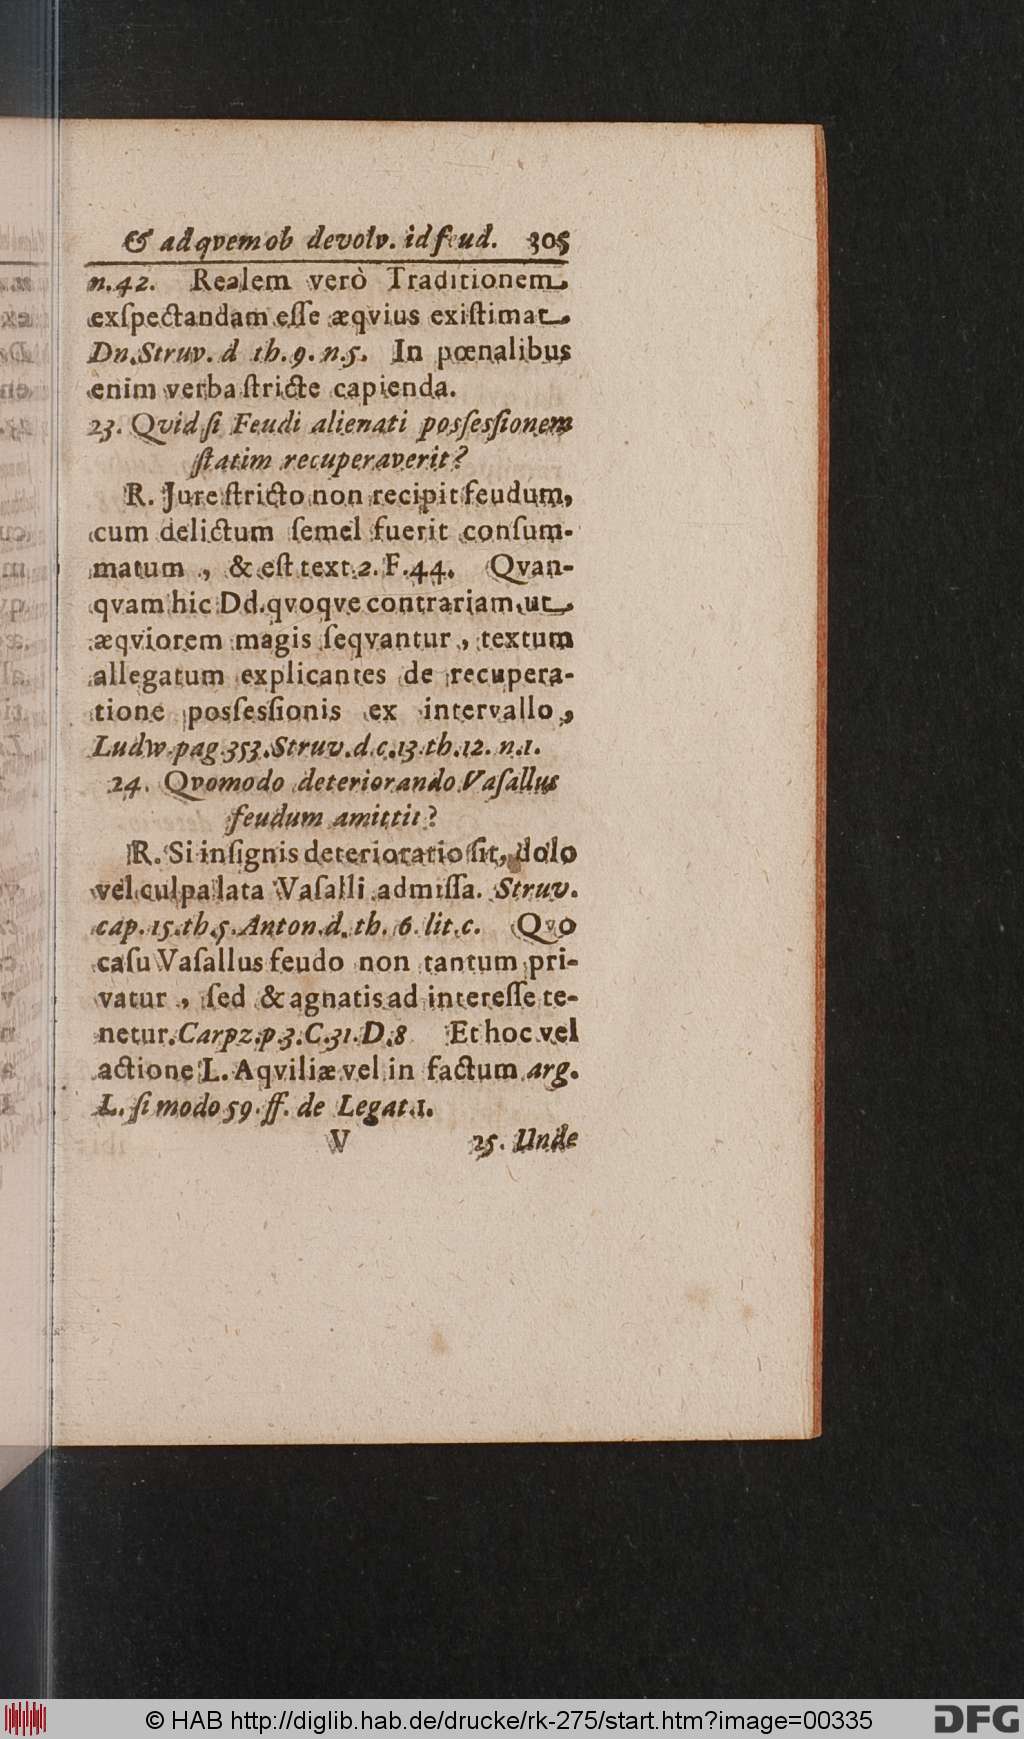 & ad qvem ob devolv. id feud. 305
n. 42. Realem verò Traditionem
exſpectandam eſſe æqvius exiſtimat
Dn. Struv. d th. 9. n. 5. In pœnalibus
enim verba ſtricte capienda.
23. Qvid ſi Feudi alienati posſesſionem
ſtatim recuperaverit?
R. Jure ſtricto non recipit feudum,
cum delictum ſemel fuerit conſum-
matum, & eſt text. 2. F. 44. Qvan-
qvam hic Dd. qvoqve contrariam ut
æqviorem magis ſeqvantur, textum
allegatum explicantes de recupera-
tione posſesſionis ex intervallo,
Ludw. pag. 353. Struv. d. c. 13. th. 12. n. 1.
24. Qvomodo deteriorando Vaſallus
feudum amittit?
R. Si inſignis deterioratio ſit, dolo
vel culpa lata Vaſalli admiſſa. Struv.
cap. 15. th. 5. Anton. d. th. 6. lit. c. Qvo
caſu Vaſallus feudo non tantum pri-
vatur, ſed & agnatis ad intereſſe te-
netur. Carpz. p. 3. C. 31. D. 8 Et hoc vel
actione L. Aqviliæ vel in factum arg.
L. ſi modo 59. ff. de Legat. 1.
V 25. Unde
© HAB http://diglib.hab.de/drucke/rk-275/start.htm?image=00335
DFG